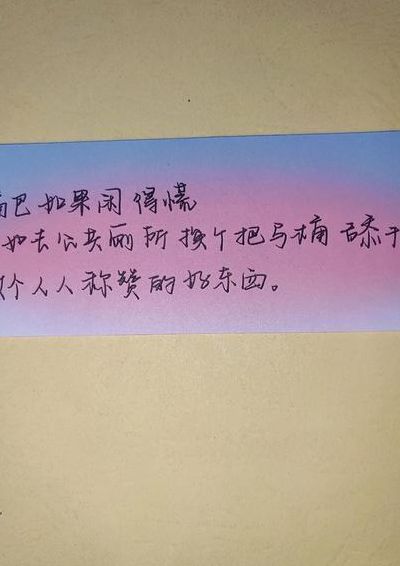 巴如果闲得慌
如去公共厕所挨个把马桶舔
个人人称赞的好东西。